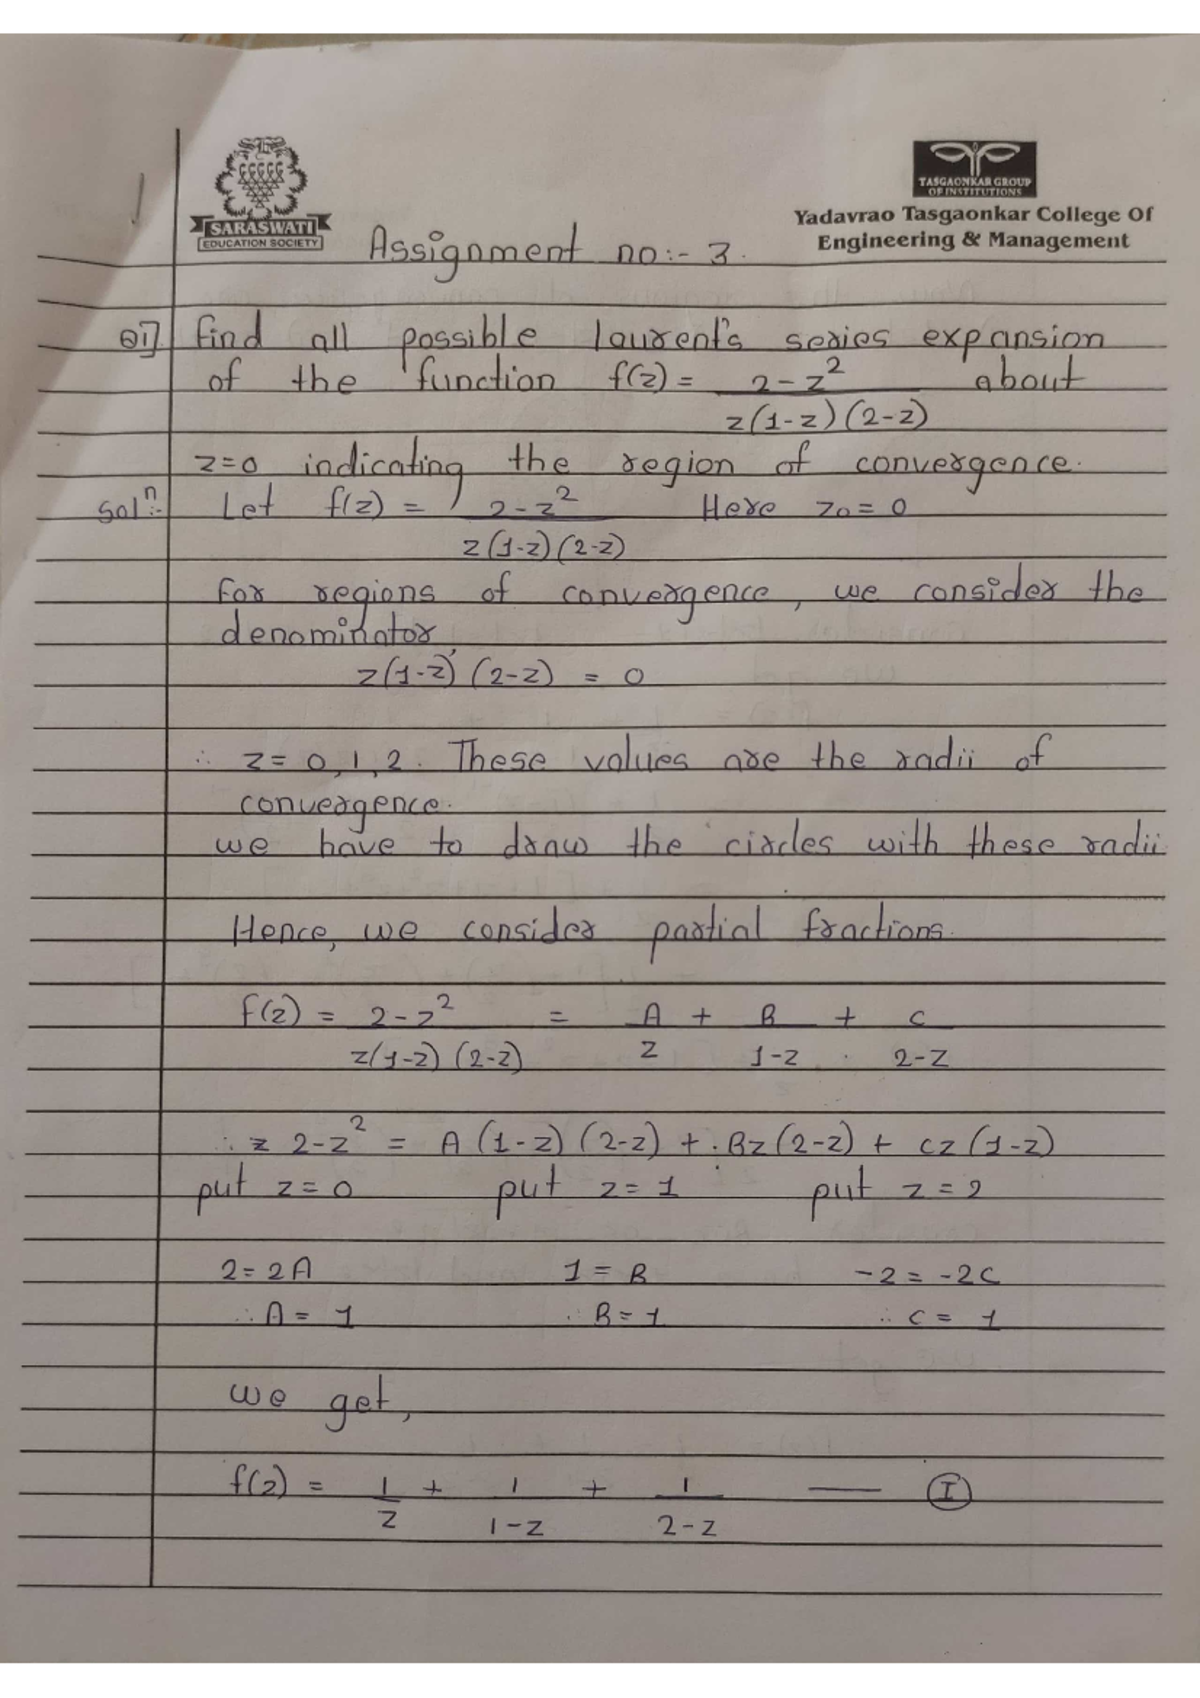 SARASWATI
EDUCATION SOCIETY
TASGAONKAR GROUP
OF INSTITUTIONS
Yadavrao Tasgaonkar College Of
Engineering & Management
Assignment no:- 3.
Q1] Find all possible laurent's series expansion
of the function f(z) = 2-z² about
z(1-z)(2-z)
z=0 indicating the region of convergence.
Solⁿ:- Let f(z) = 2-z² Here z₀ = 0
z(1-z)(2-z)
For regions of convergence, we consider the
denominator
z(1-z)(2-z) = 0
∴ z = 0, 1, 2. These values are the radii of
convergence.
we have to draw the circles with these radii
Hence, we consider partial fractions.
f(z) = 2-z² = A + B + C
z(1-z)(2-z) z 1-z 2-z
∴ 2-z² = A(1-z)(2-z) + Bz(2-z) + Cz(1-z)
put z=0 put z=1 put z=2
2=2A 1=B -2=-2C
∴ A=1 ∴ B=1 ∴ C=1
we get,
f(z) = 1 + 1 + 1 — I
z 1-z 2-z